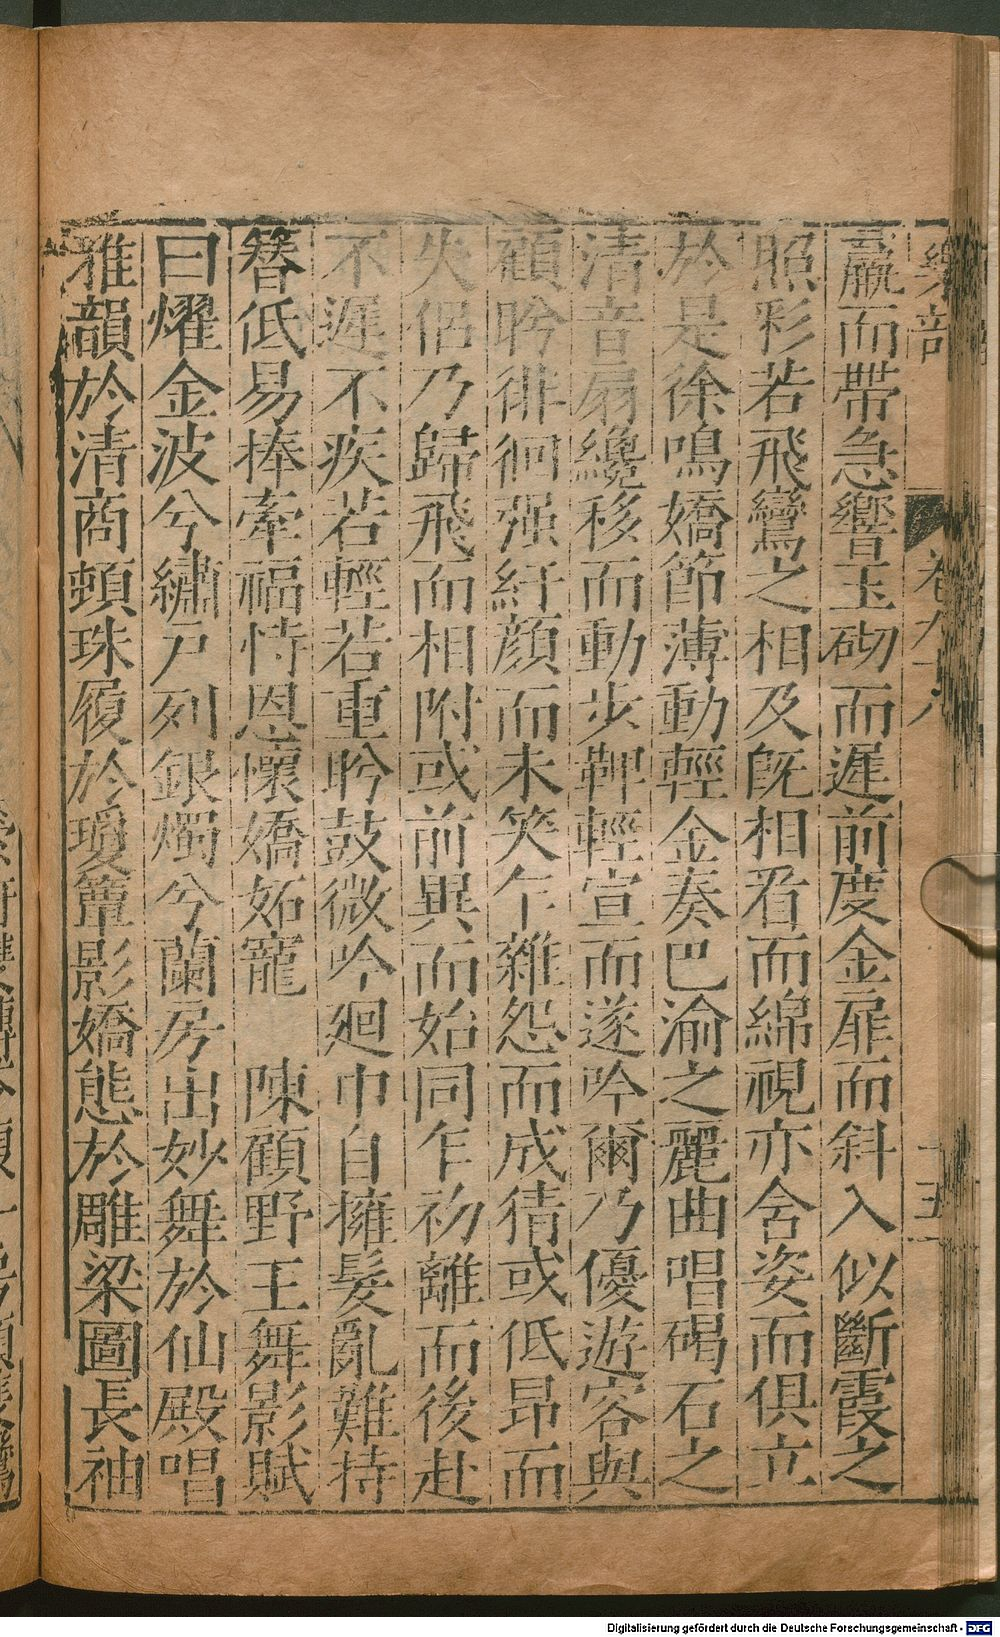 樂部 卷九 十五
羸而帶急響玉砌而遲前度金扉而斜入似斷霞之
照彩若飛鸞之相及旣相看而綿視亦含姿而俱立
於是徐鳴嬌節薄動輕金奏巴渝之麗曲唱碣石之
清音扇纔移而動步鞞輕宣而遂吟爾乃優遊容與
顧盻徘徊强紆顔而未笑乍雜怨而成猜或低昂而
失侶乃歸飛而相附或前異而始同乍初離而後赴
不遲不疾若輕若重盻鼓微吟廻巾自擁髮亂難持
簪低易捧牽福恃恩懷嬌妬寵　陳顧野王舞影賦
曰燿金波兮繡戸列銀燭兮蘭房出妙舞於仙殿唱
雅韻於清商頓珠履於瓊簟影嬌態於雕梁圖長袖
Digitalisierung gefördert durch die Deutsche Forschungsgemeinschaft - DFG